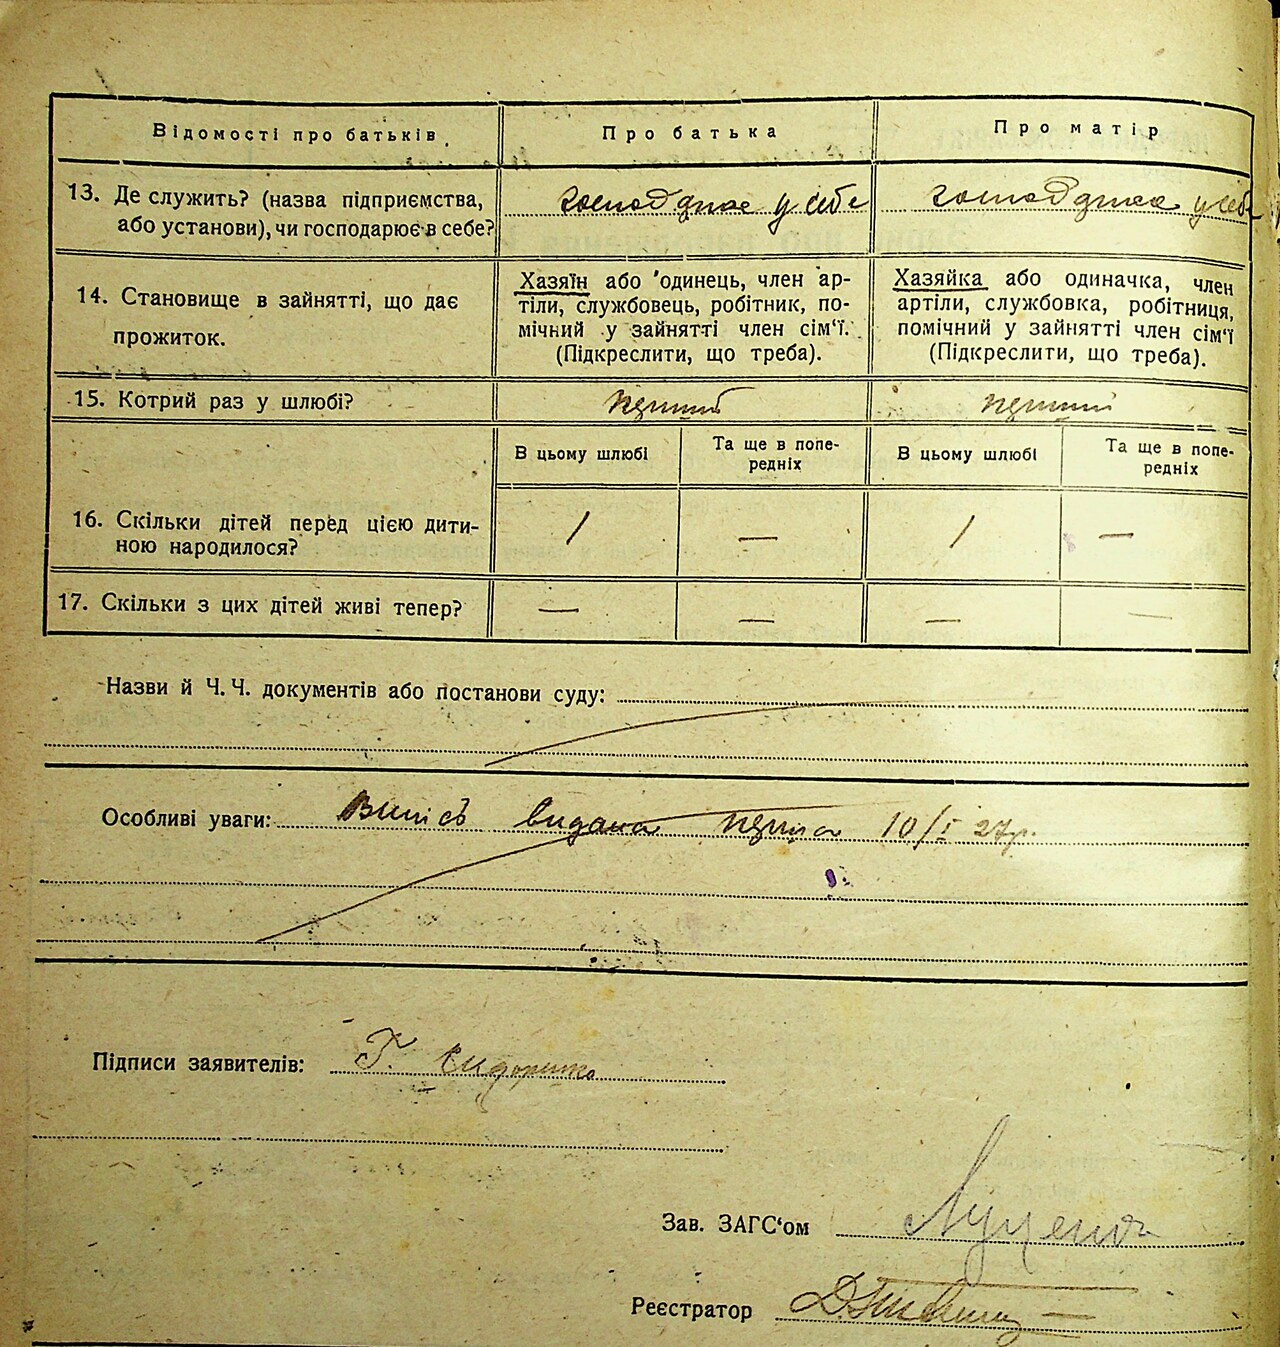 Відомості про батьків.
Про батька
Про матір
13. Де служить? (назва підприємства,
або установи), чи господарює в себе?
господарює у себе
господарює у себе
14. Становище в зайнятті, що дає
прожиток.
Хазяїн або одинець, член ар-
тіли, службовець, робітник, по-
мічний у зайнятті член сім'ї.
(Підкреслити, що треба).
Хазяйка або одиначка, член
артіли, службовка, робітниця,
помічний у зайнятті член сім'ї
(Підкреслити, що треба).
15. Котрий раз у шлюбі?
перший
перший
В цьому шлюбі
Та ще в попе-
редніх
В цьому шлюбі
Та ще в попе-
редніх
16. Скільки дітей перед цією дити-
ною народилося?
1 — 1 —
17. Скільки з цих дітей живі тепер?
— — — —
Назви й Ч. Ч. документів або постанови суду:
Особливі уваги: Випись видана перша 10/I 27р.
Підписи заявителів: Г. Сидоренко
Зав. ЗАГС'ом Луценко
Реєстратор